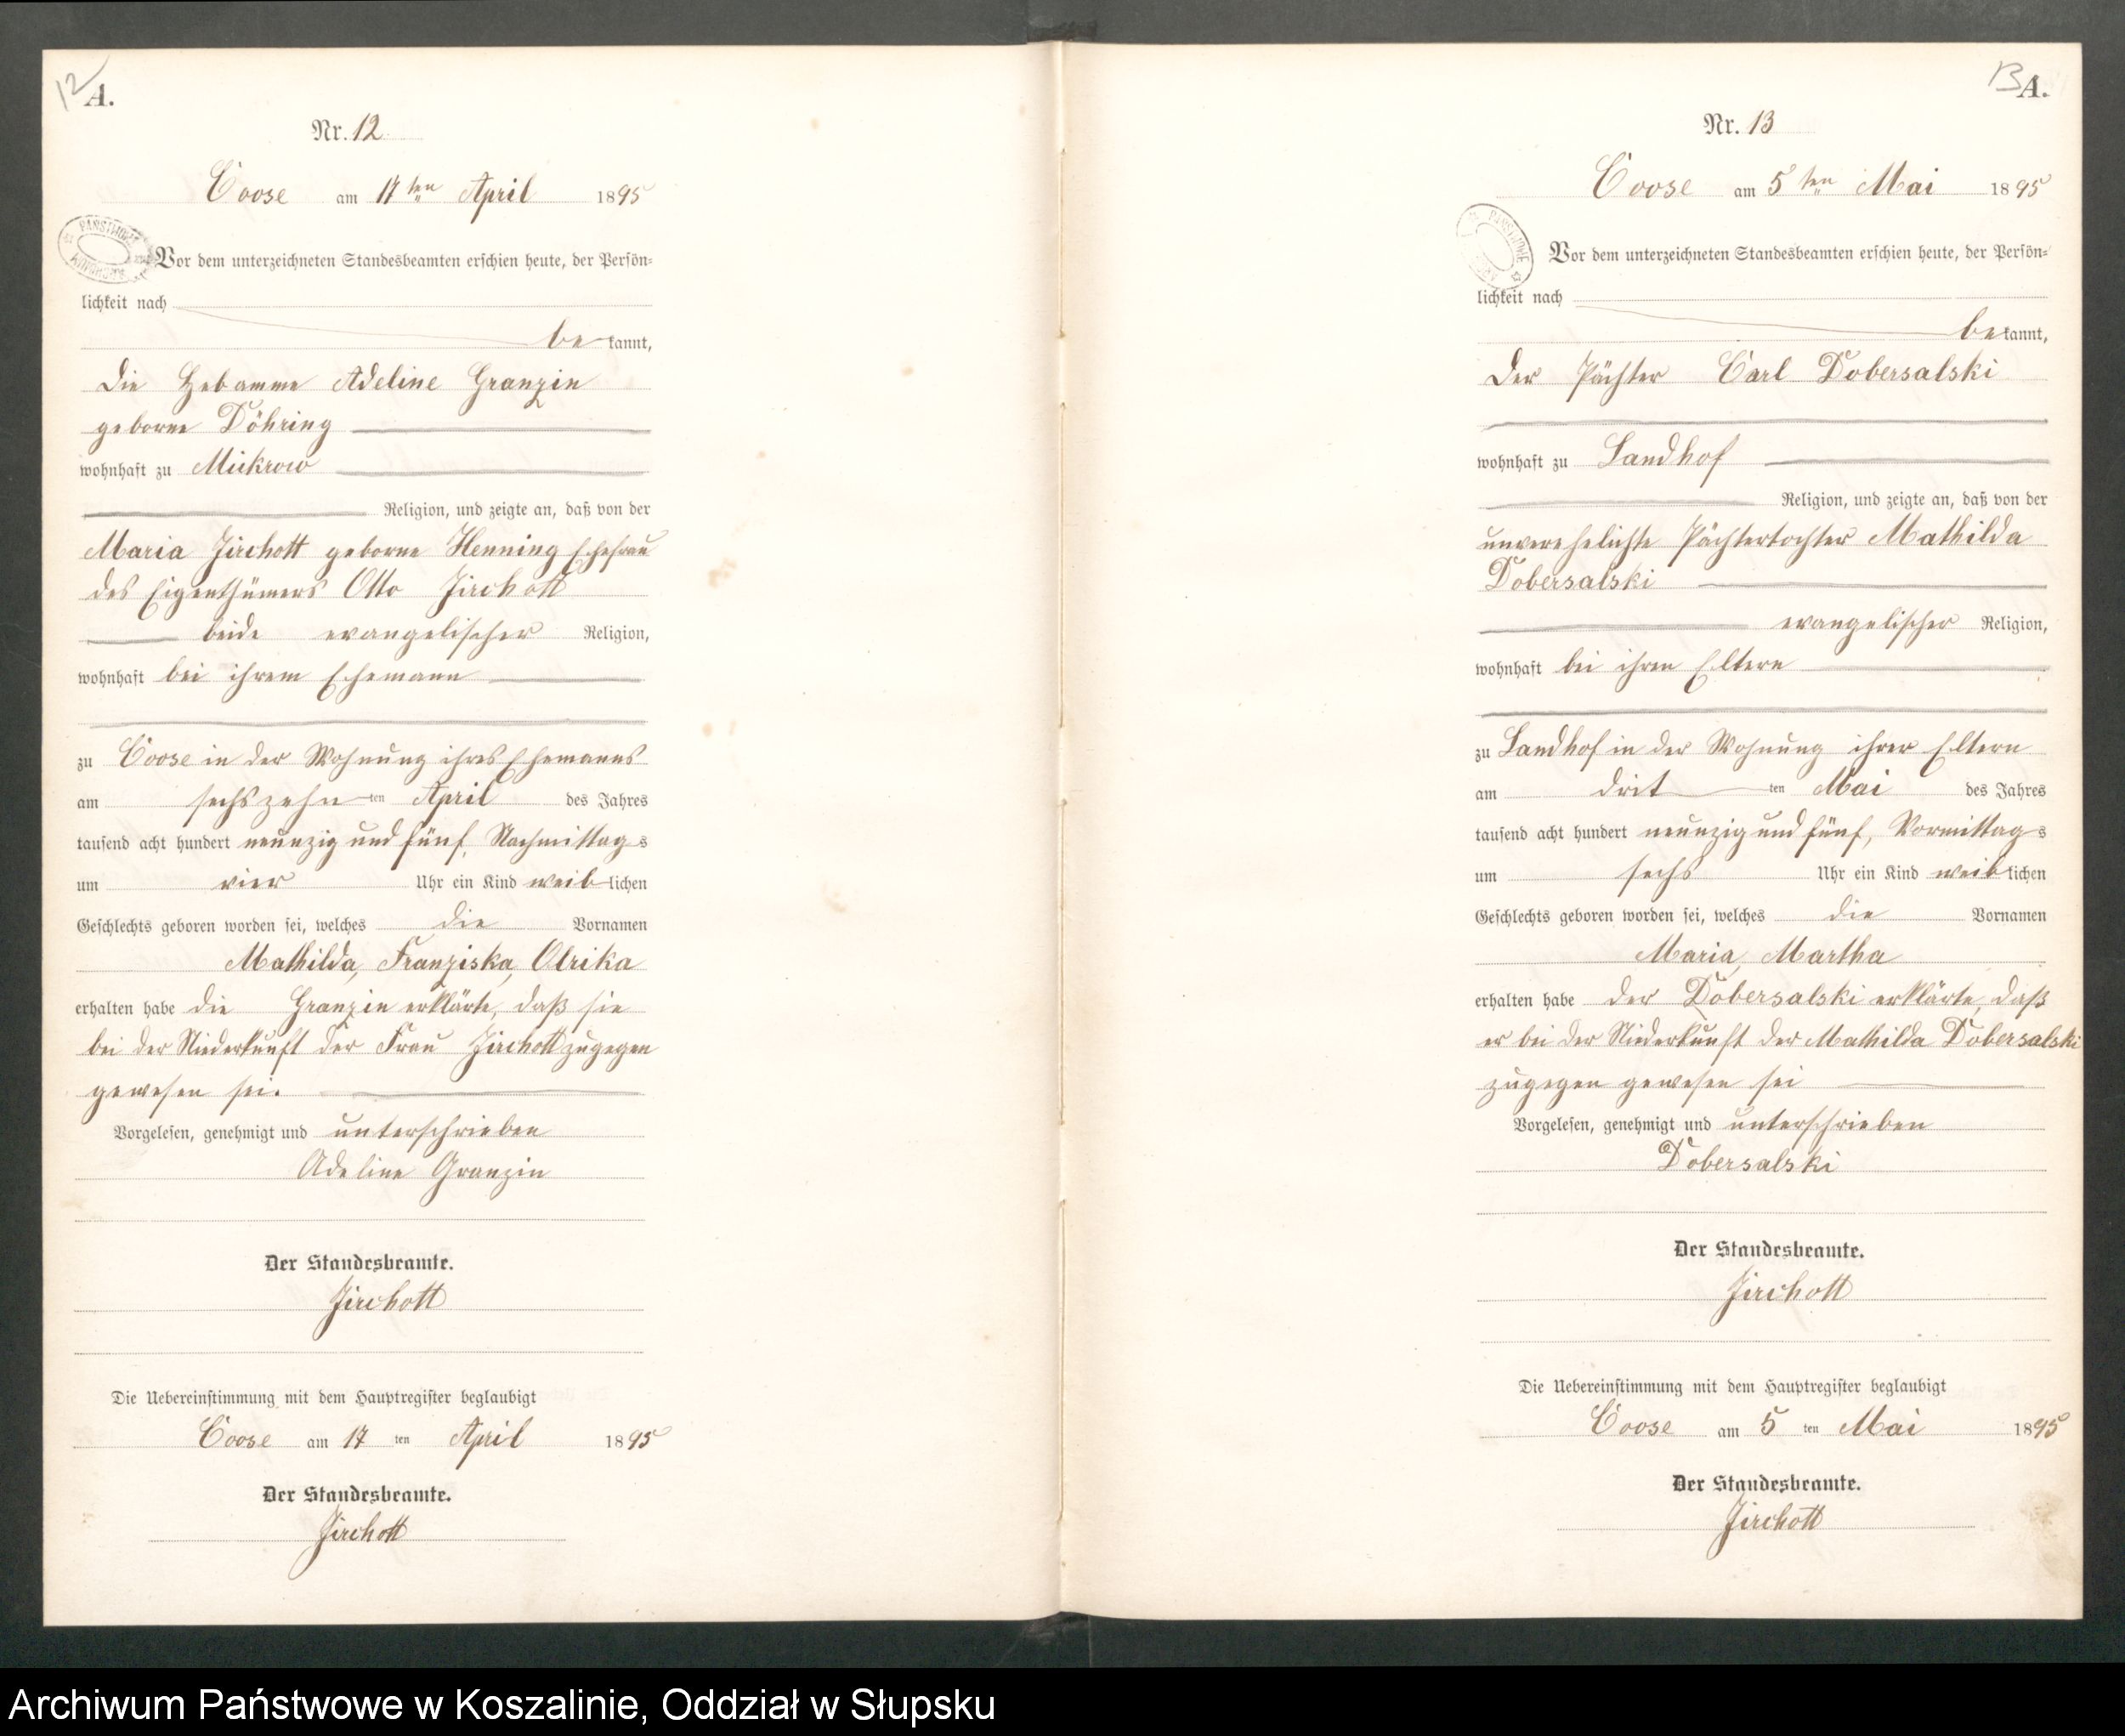 12
A.
Nr. 12
Coose am 17ten April 1895
PAŃSTWOWE
ARCHIWUM
Vor dem unterzeichneten Standesbeamten erschien heute, der Persön-
lichkeit nach
bekannt,
die Hebamme Adeline Granzin
geborne Döhring
wohnhaft zu Mickrow
Religion, und zeigte an, daß von der
Maria Jirchott geborne Henning Ehefrau
des Eigenthümers Otto Jirchott
beide evangelischer Religion,
wohnhaft bei ihrem Ehemann
zu Coose in der Wohnung ihres Ehemanns
am sechszehnten April des Jahres
tausend acht hundert neunzig und fünf, Nachmittags
um vier Uhr ein Kind weiblichen
Geschlechts geboren worden sei, welches die Vornamen
Mathilda, Franziska, Olrika
erhalten habe die Granzin erklärte, daß sie
bei der Niederkunft der Frau Jirchott zugegen
gewesen sei.
Vorgelesen, genehmigt und unterschrieben
Adeline Granzin
Der Standesbeamte.
Jirchott
Die Uebereinstimmung mit dem Hauptregister beglaubigt
Coose am 17ten April 1895
Der Standesbeamte.
Jirchott
13
A.
Nr. 13
Coose am 5ten Mai 1895
PAŃSTWOWE
Vor dem unterzeichneten Standesbeamten erschien heute, der Persön-
lichkeit nach
bekannt,
der Pächter Carl Dobersalski
wohnhaft zu Landhof
Religion, und zeigte an, daß von der
unverehelichte Pächtertochter Mathilda
Dobersalski
evangelischer Religion,
wohnhaft bei ihren Eltern
zu Landhof in der Wohnung ihrer Eltern
am dritten Mai des Jahres
tausend acht hundert neunzig und fünf, Vormittags
um sechs Uhr ein Kind weiblichen
Geschlechts geboren worden sei, welches die Vornamen
Maria, Martha
erhalten habe der Dobersalski erklärte, daß
er bei der Niederkunft der Mathilda Dobersalski
zugegen gewesen sei
Vorgelesen, genehmigt und unterschrieben
Dobersalski
Der Standesbeamte.
Jirchott
Die Uebereinstimmung mit dem Hauptregister beglaubigt
Coose am 5ten Mai 1895
Der Standesbeamte.
Jirchott
Archiwum Państwowe w Koszalinie, Oddział w Słupsku